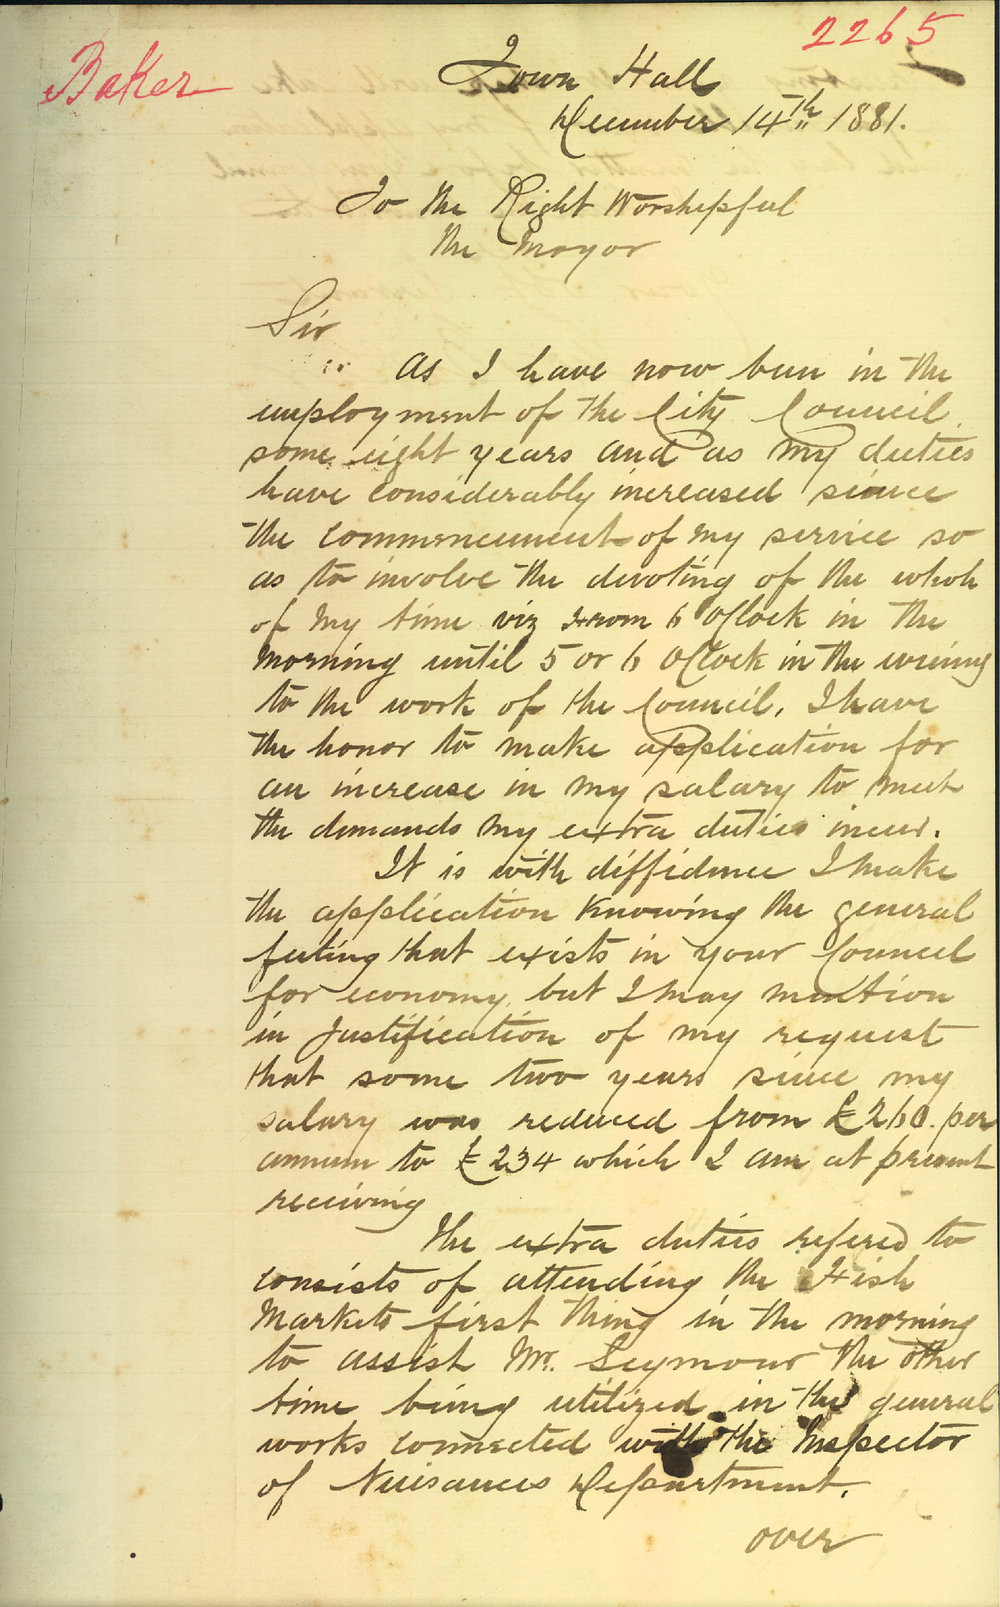 Baker
2265
Town Hall
December 14th 1881.
To the Right Worshipful
the Mayor
Sir
As I have now been in the
employment of the City Council
some eight years and as my duties
have considerably increased since
the commencement of my service so
as to involve the devoting of the whole
of my time viz from 6 O'Clock in the
morning until 5 or 6 O'Clock in the evening
to the work of the Council, I have
the honor to make application for
an increase in my salary to meet
the demands my extra duties incur.
It is with diffidence I make
the application knowing the general
feeling that exists in your Council
for economy, but I may mention
in justification of my request
that some two years since my
salary was reduced from £260. per
annum to £234 which I am at present
receiving
The extra duties refered to
consists of attending the Fish
Markets first thing in the morning
to assist Mr. Seymour the other
time being utilized in the general
works connected with the Inspector
of Nuisances Department.
over